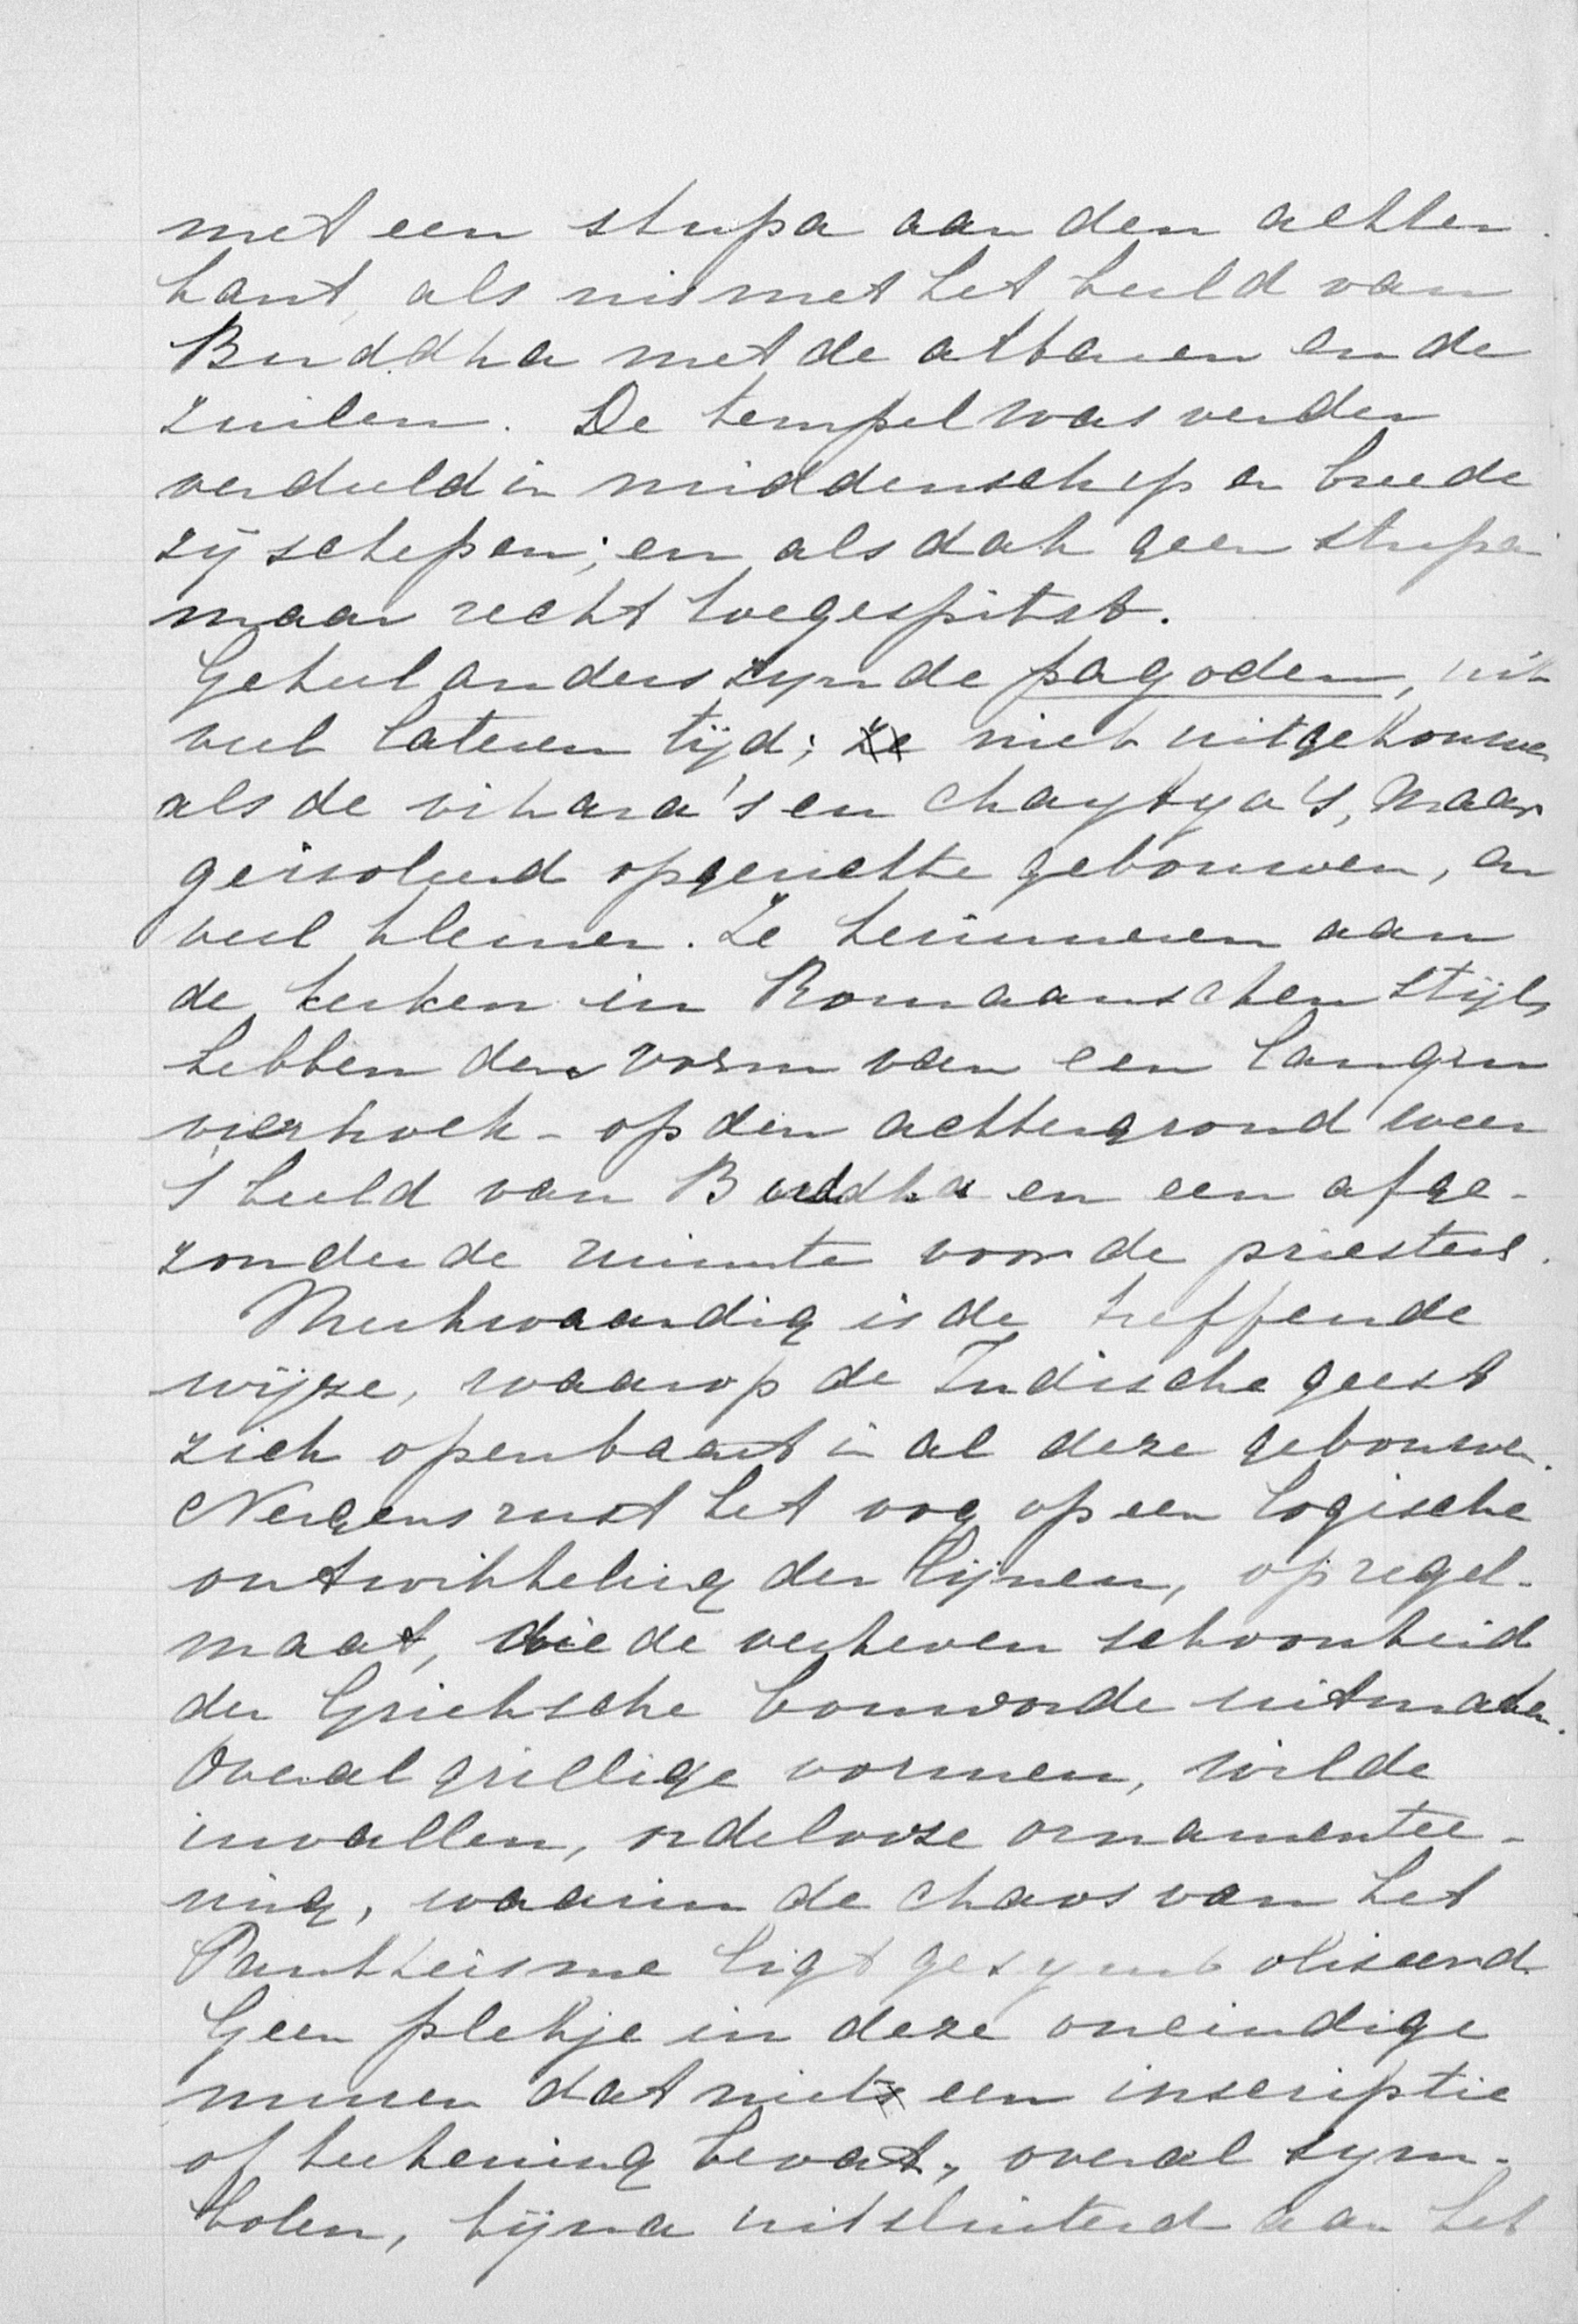 met een stupa aan den achter
kant, als nis met het beeld van
Buddha met de altaren en de
zuilen. De tempel was verder
verdeeld in middenschip en breede
zijschepen; en als dak geen stupa
maar recht toegespitst.
Geheel anders zyn de pagoden, uit
veel lateren tijd; ze niet uitgehouwen
als de vihara's en chaytya's, maar
geisoleerd opgerichte gebouwen, en
veel kleiner. Ze herinneren aan
de kerken in Romaanschen stijl,
hebben den vorm van een langen
vierhoek - op den achtergrond weer
't beeld van Buddha en een afge-
zonderde ruimte voor de priesters.
Merkwaardig is de treffende
wijze, waarop de Indische geest
zich openbaart in al deze gebouwen.
Nergens rust het oog op een logische
ontwikkeling der lijnen, op regel-
maat, die de verheven schoonheid
der Grieksche bouworde uitmaken.
Overal grillige vormen, wilde
invallen, ordelooze ornamentee-
ring, waarin de chaos van het
Pantheisme ligt gesymboliseerd.
Geen plekje in deze oneindige
muren dat niets een inscriptie
of teekening bevat, overal sym-
bolen, bijna uitsluitend aan het